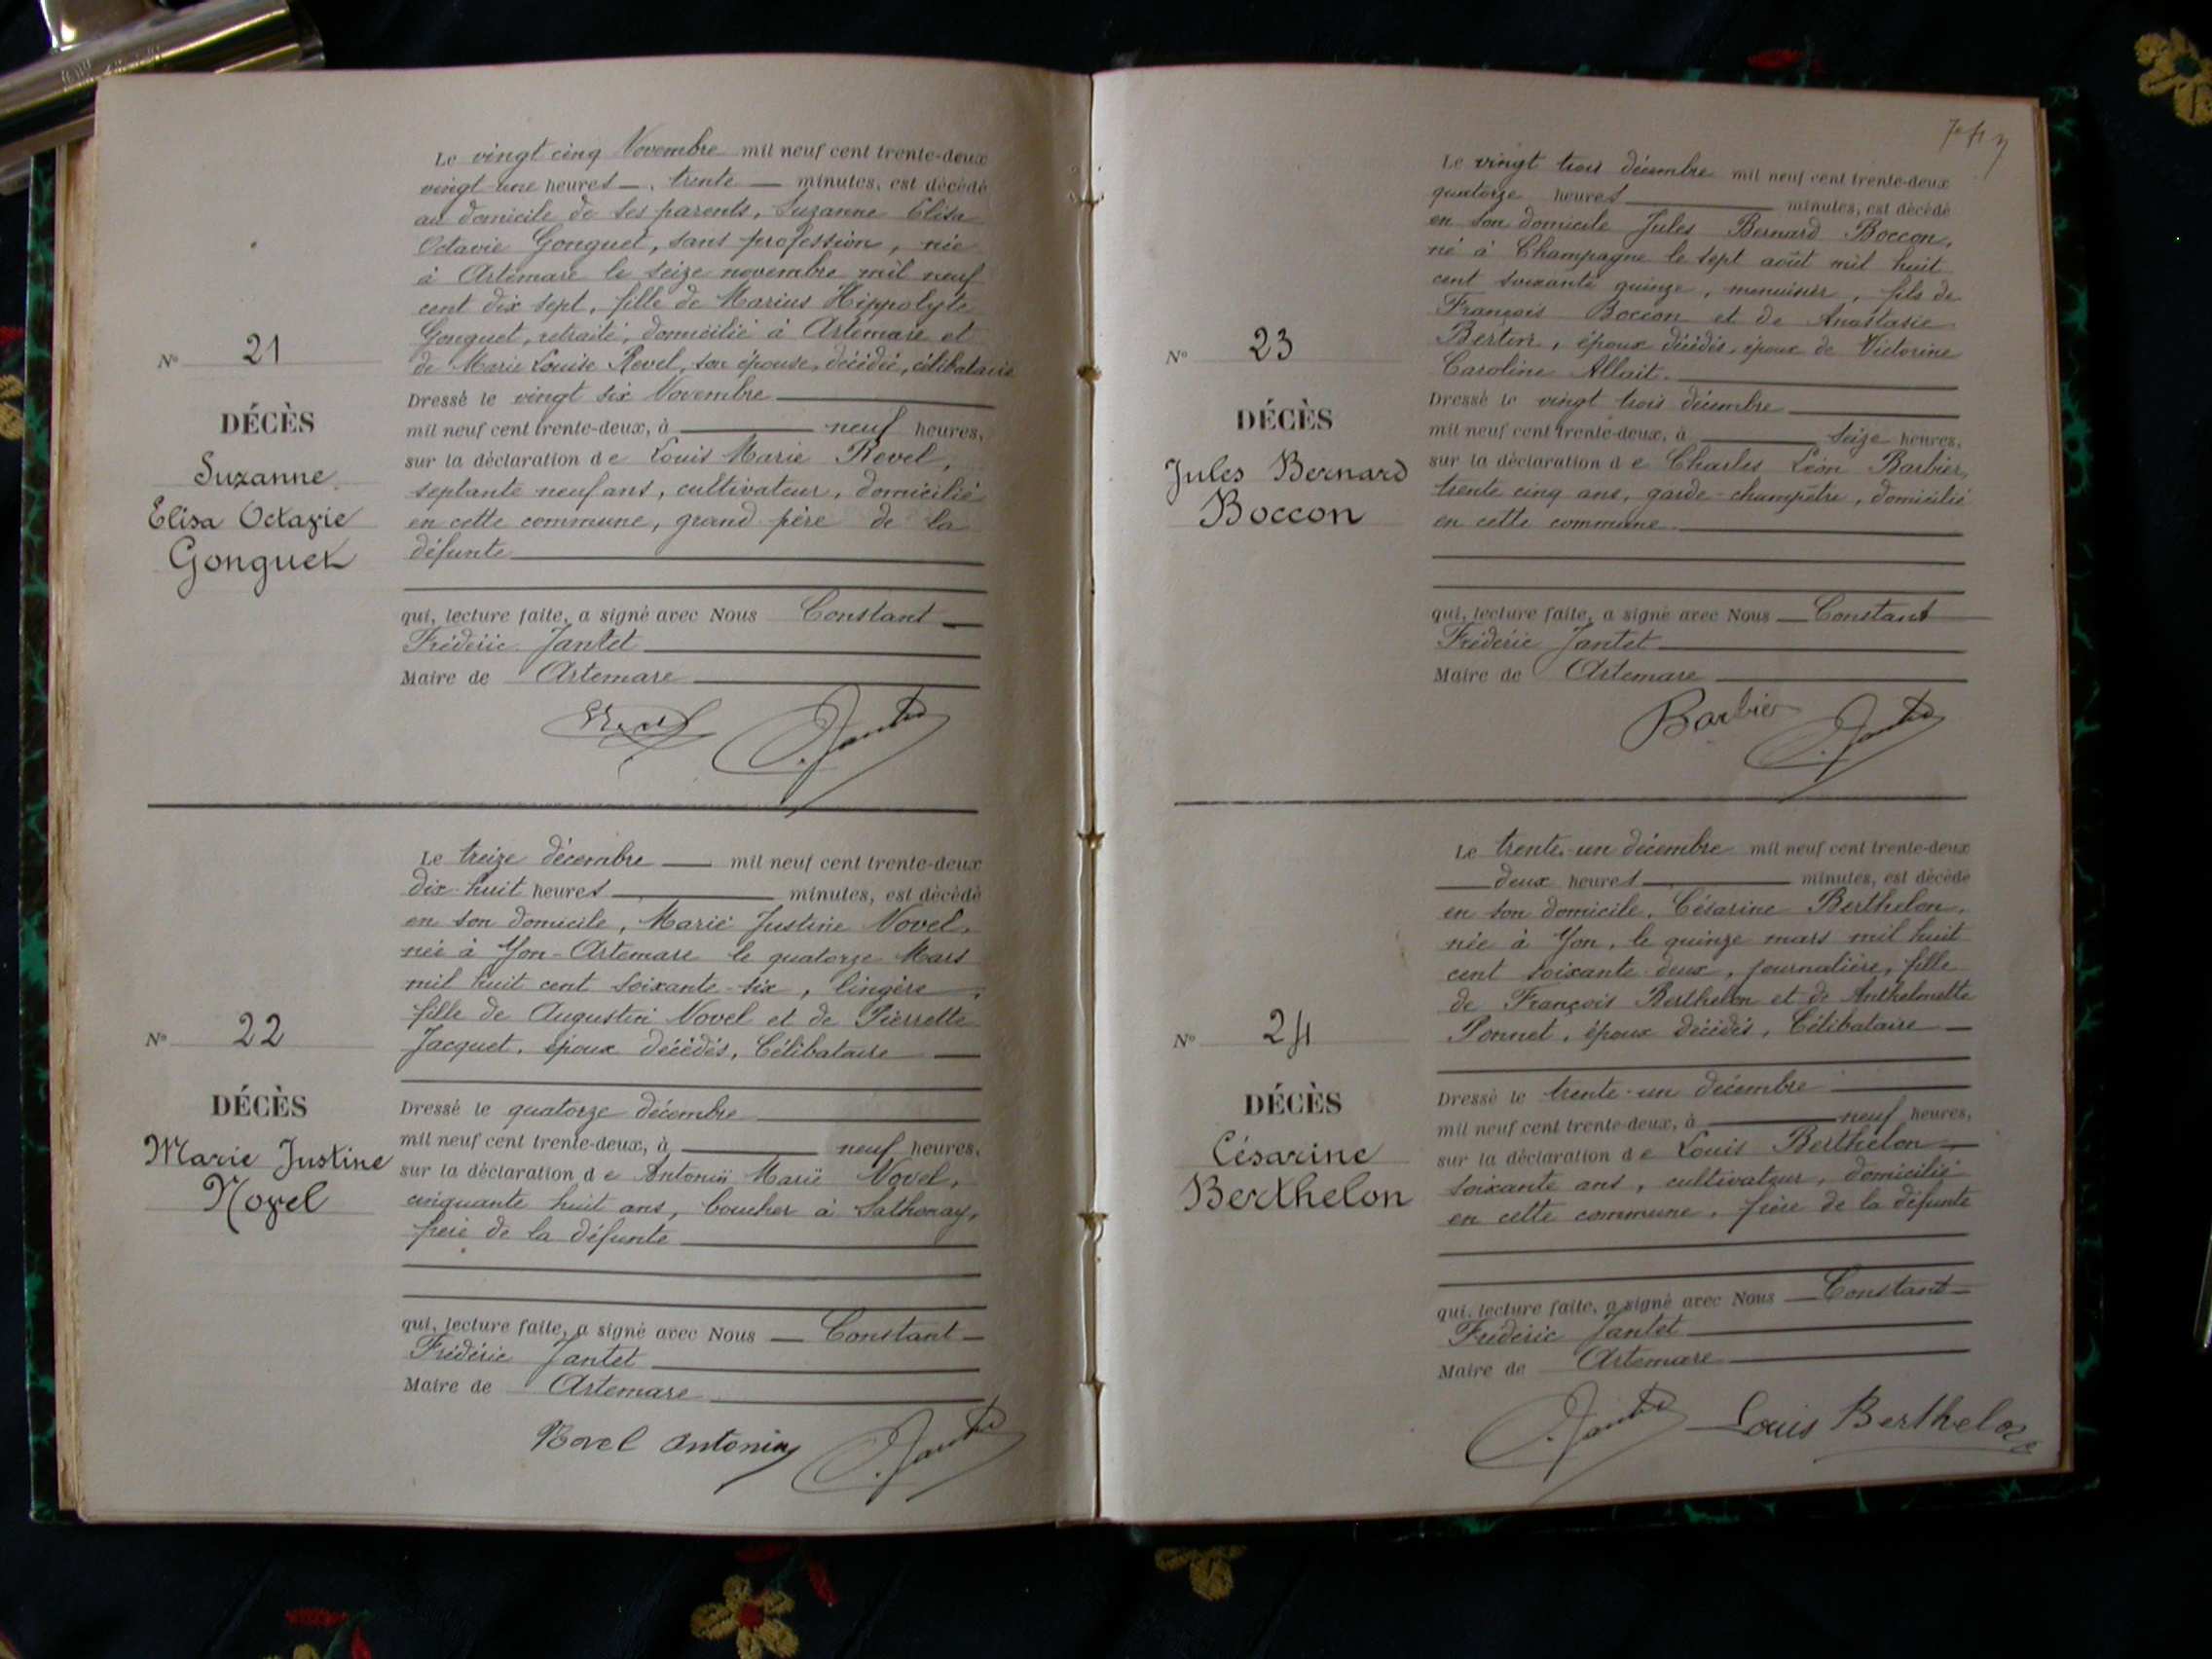 Le vingt cinq Novembre mil neuf cent trente-deux
vingt-une heures, trente minutes, est décédé
au domicile de ses parents, Suzanne Elisa
Octavie Gonguet, sans profession, née
à Artemare le seize novembre mil neuf
cent dix sept, fille de Marius Hippolyte
Gonguet, retraité, domicilié à Artemare et
de Marie Louise Revel, son épouse, décédée, célibataire
Nº 21
DÉCÈS
Suzanne
Elisa Octavie
Gonguet
Dressé le vingt six Novembre
mil neuf cent trente-deux, à neuf heures,
sur la déclaration de Louis Marie Revel,
septante neuf ans, cultivateur, domicilié
en cette commune, grand père de la
défunte
qui, lecture faite, a signé avec Nous Constant
Frédéric Jantet
Maire de Artemare
Le treize décembre mil neuf cent trente-deux
dix-huit heures minutes, est décédé
en son domicile, Marie Justine Novel,
née à Yon-Artemare le quatorze Mars
mil huit cent soixante-six, lingère,
fille de Augustin Novel et de Pierrette
Jacquet, époux décédés, Célibataire
Nº 22
DÉCÈS
Marie Justine
Novel
Dressé le quatorze décembre
mil neuf cent trente-deux, à neuf heures,
sur la déclaration de Antonin Marie Novel,
cinquante huit ans, boucher à Sathonay,
frère de la défunte
qui, lecture faite, a signé avec Nous Constant
Frédéric Jantet
Maire de Artemare
Novel Antonin Jantet
Le vingt trois décembre mil neuf cent trente-deux
quatorze heures minutes, est décédé
en son domicile Jules Bernard Boccon,
né à Champagne le sept août mil huit
cent soixante quinze, menuisier, fils de
François Boccon et de Anastasie
Bertin, époux décédés, époux de Victorine
Caroline Allait.
Nº 23
DÉCÈS
Jules Bernard
Boccon
Dressé le vingt trois décembre
mil neuf cent trente-deux, à seize heures,
sur la déclaration de Charles Léon Barbier,
trente cinq ans, garde-champêtre, domicilié
en cette commune
qui, lecture faite, a signé avec Nous Constant
Frédéric Jantet
Maire de Artemare
Barbier Jantet
Le trente-un décembre mil neuf cent trente-deux
deux heures minutes, est décédé
en son domicile, Césarine Berthelon,
née à Yon, le quinze mars mil huit
cent soixante-deux, journalière, fille
de François Berthelon et de Anthelmette
Ponnet, époux décédés, Célibataire
Nº 24
DÉCÈS
Césarine
Berthelon
Dressé le trente-un décembre
mil neuf cent trente-deux, à neuf heures,
sur la déclaration de Louis Berthelon
soixante ans, cultivateur, domicilié
en cette commune, frère de la défunte
qui, lecture faite, a signé avec Nous Constant
Frédéric Jantet
Maire de Artemare
Jantet Louis Berthelon